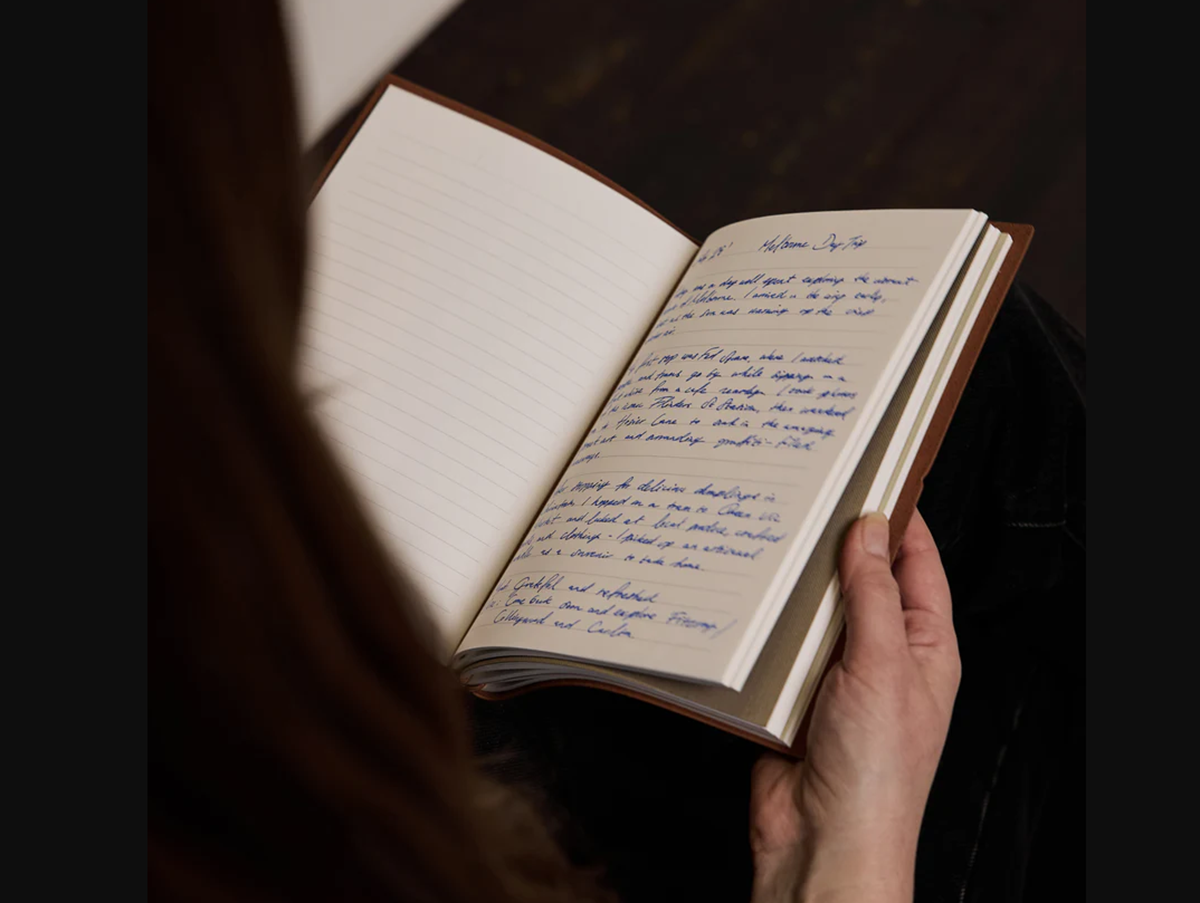 Melbourne Day Trip
was a day well spent exploring the vibrant
of Melbourne. I arrived in the city early,
as the sun was warming up the
first stop was Fed Square, where I watched
and trams go by while sipping on a
white from a cafe nearby. I took photos
the iconic Flinders St Station, then wandered
Hosier Lane to soak in the amazing
art and surrounding graffiti-filled
stopping for delicious dumplings in
I hopped on a tram to Queen Vic
and looked at local produce,
and clothing - I picked up an artisanal
as a souvenir to take home.
Grateful and refreshed
Come back soon and explore Fitzroy/
Collingwood and Carlton